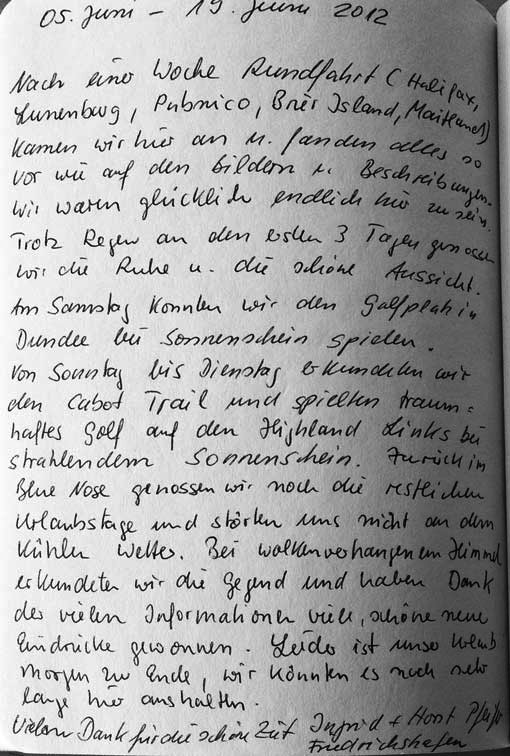 05. Juni - 19. Juni 2012
Nach einer Woche Rundfahrt (Halifax,
Lunenburg, Pubnico, Brier Island, Maitland)
kamen wir hier an u. fanden alles so
vor wie auf den Bildern u. Beschreibungen.
Wir waren glücklich endlich hier zu sein.
Trotz Regen an den ersten 3 Tagen genossen
wir die Ruhe u. die schöne Aussicht.
Am Samstag konnten wir den Golfplatz in
Dundee bei Sonnenschein spielen.
Von Sonntag bis Dienstag erkundeten wir
den Cabot Trail und spielten traum=
haftes Golf auf den Highland Links bei
strahlendem Sonnenschein. Zurück im
Blue Nose genossen wir noch die restlichen
Urlaubstage und störten uns nicht an dem
kühlen Wetter. Bei wolkenverhangenem Himmel
erkundeten wir die Gegend und haben Dank
der vielen Informationen viele, schöne neue
Eindrücke gewonnen. Leider ist unser Urlaub
morgen zu Ende, wir könnten es noch sehr
lange hier aushalten.
Vielen Dank für die schöne Zeit Ingrid + Horst
Friedrichshafen